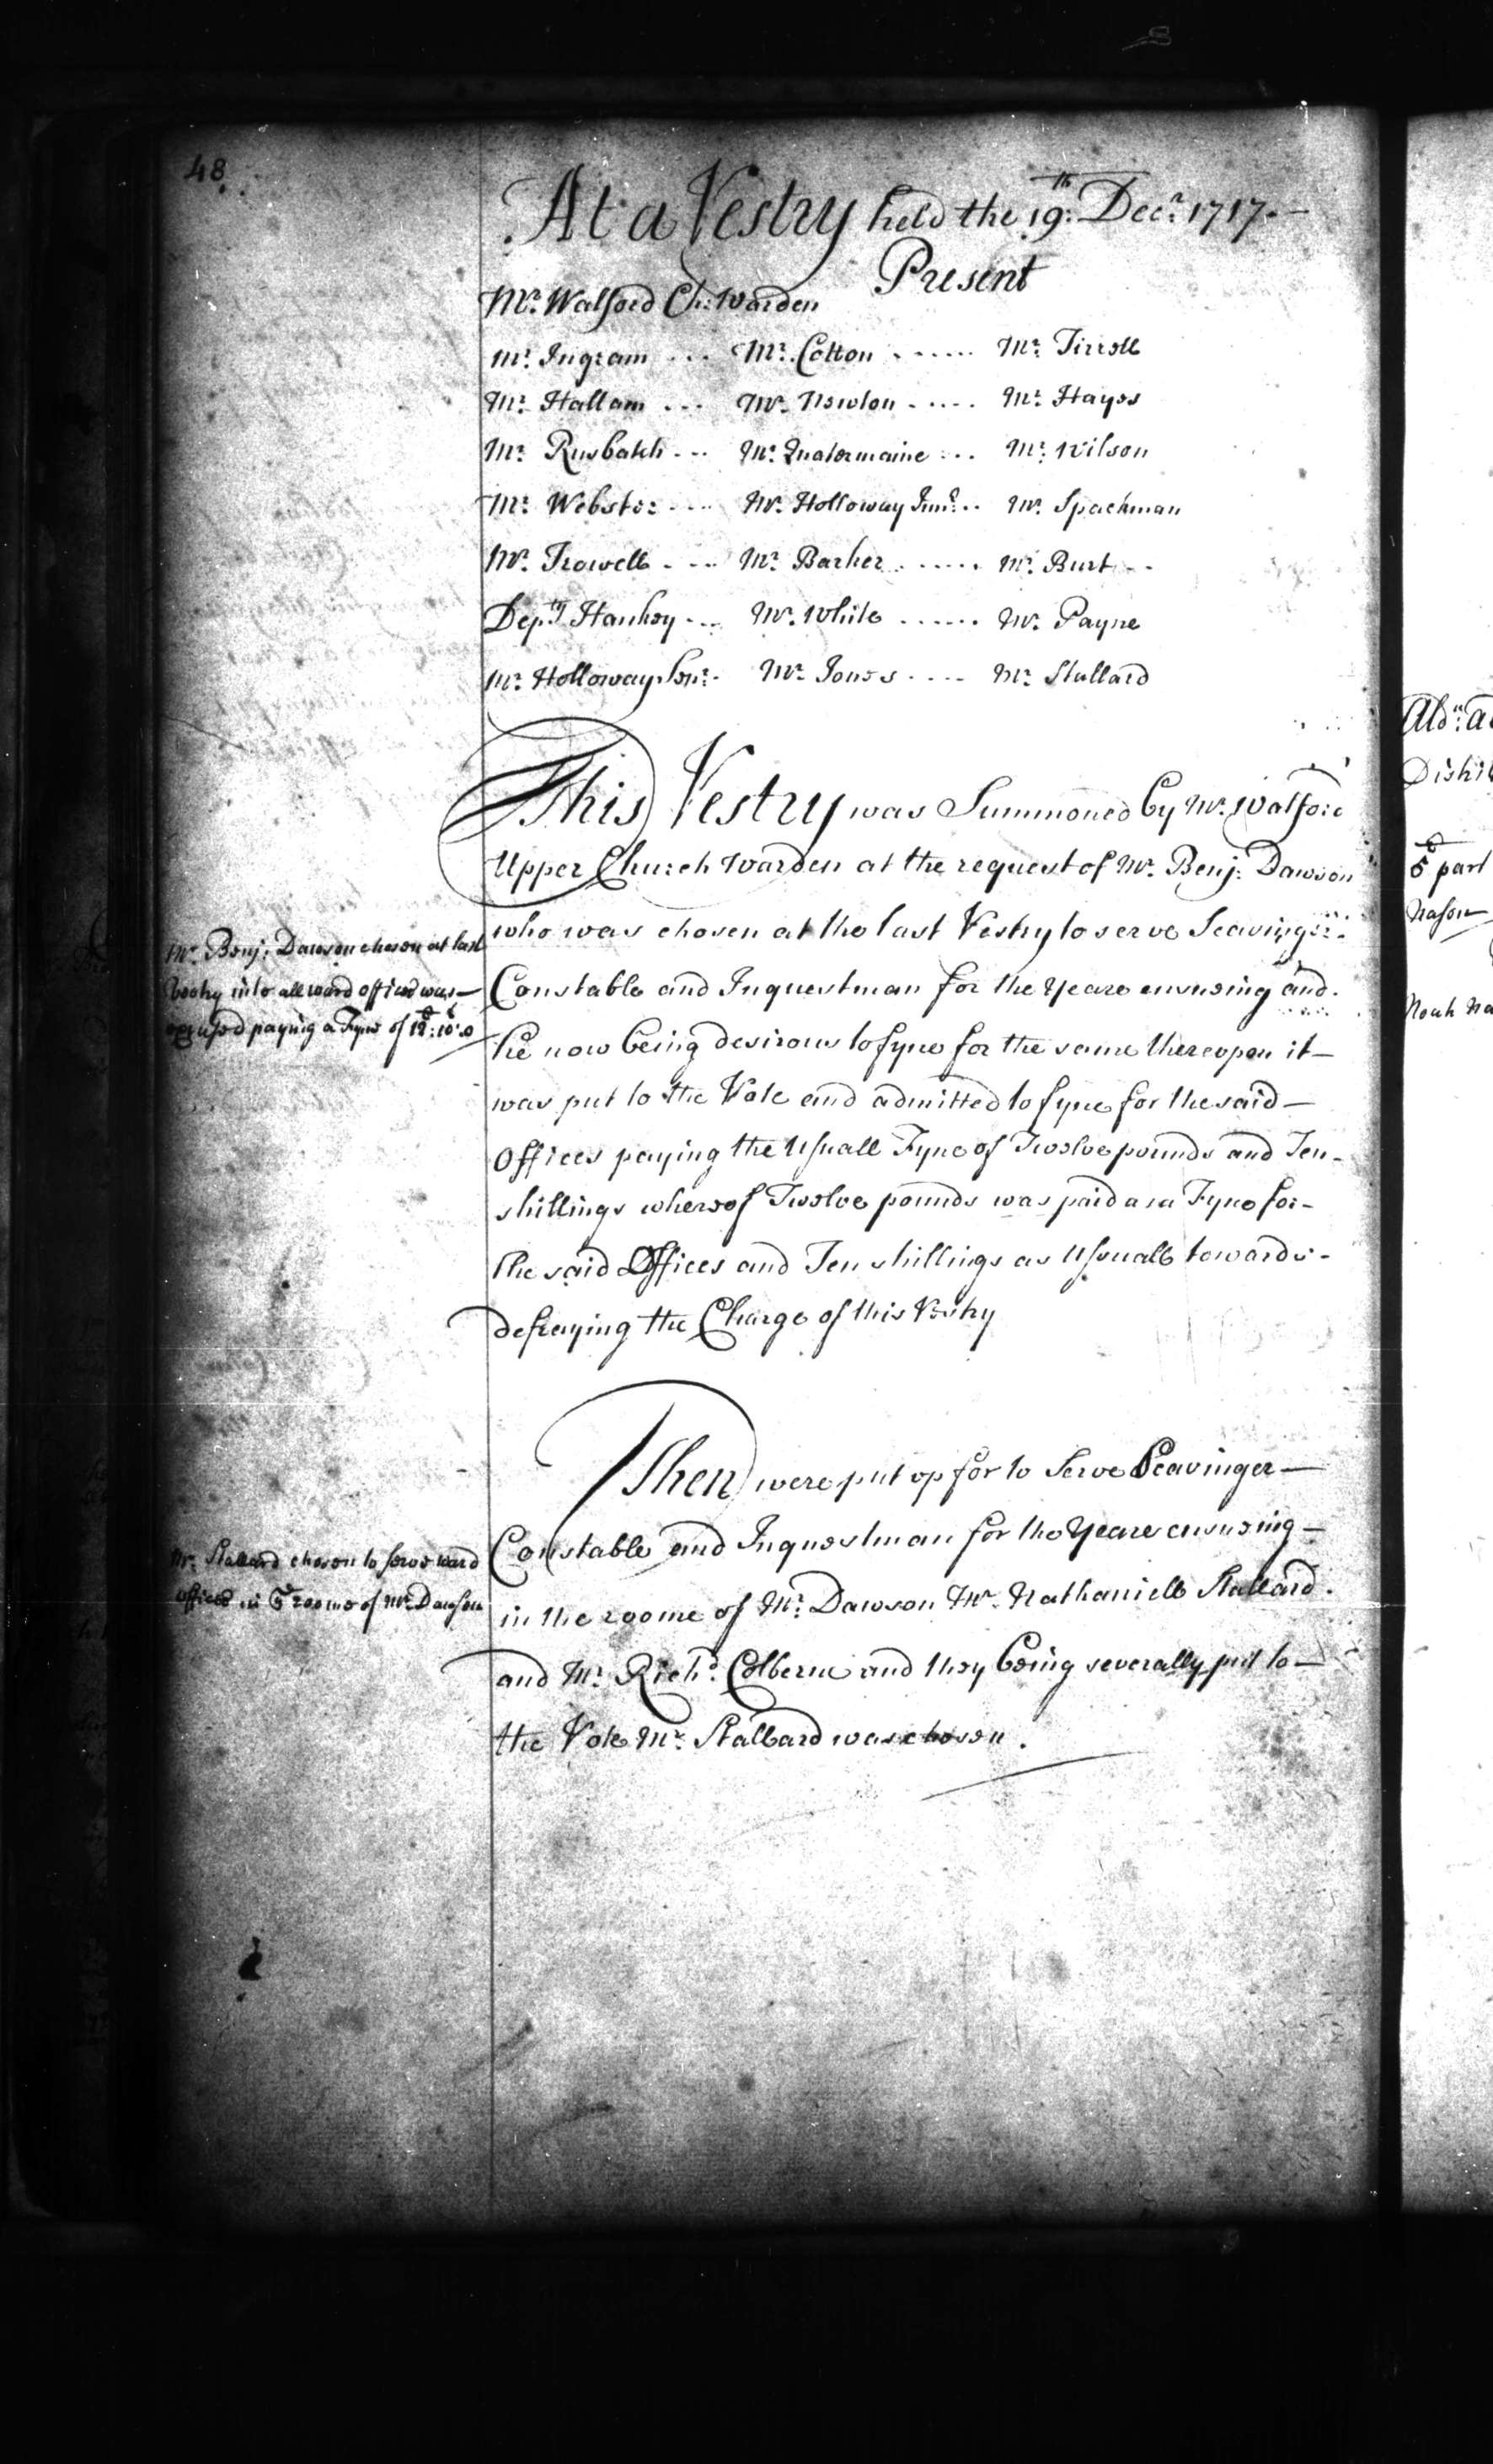 48
At a Vestry held the 19th: Decr. 1717.
Present
Mr. Walford Ch: Warden
Mr. Ingram ... Mr. Cotton ...... Mr. Tirroll
Mr. Hallam ... Mr. Nowton ..... Mr. Hayos
Mr. Rusbatch ... Mr. Quatormaine ... Mr. Wilson
Mr. Webster .... Mr. Holloway Junr. .. Mr. Spackman
Mr. Trowell .... Mr. Barker ...... Mr. Burt
Depty Hankey ... Mr. White ...... Mr. Payne
Mr. Holloway Senr. Mr. Jones .... Mr. Stallard
This Vestry was Summoned by Mr. Walford
Upper Church Warden at the request of Mr. Benj: Dawson
who was chosen at the last Vestry to serve Scavinger
Mr. Benj: Dawson chosen at last
Vestry into all ward offices was —
excused paying a Fyne of 12£: 10s: 0
Constable and Inquestman for the Yeare ensueing and
he now being desirous to fyne for the same thereupon it —
was put to the Vote and admitted to fyne for the said —
Offices paying the Usuall Fyne of Twelve pounds and Ten
shillings whereof Twelve pounds was paid as a Fyne for
the said Offices and Ten shillings as Usuall towards
defraying the Charge of this Vestry
Then were put up for to Serve Scavinger —
Constable and Inquestman for the Yeare ensueing —
Mr. Stallard chosen to serve ward
offices in ye roome of Mr. Dawson
in the roome of Mr. Dawson Mr. Nathaniell Stallard
and Mr. Richd. Colberne and they being severally put to —
the Vote Mr. Stallard was chosen.
Aldn.
5 part
Nason
Noah